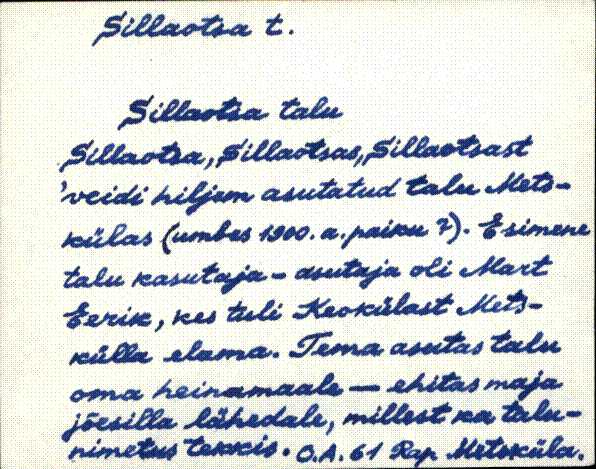 Sillaotsa t.
Sillaotsa talu
Sillaotsa, Sillaotsas, Sillaotsast
'veidi hiljem asutatud talu Mets-
külas (umbes 1900. a. paiku ?). Esimene
talu kasutaja - asutaja oli Mart
Eerik, kes tuli Keokülast Mets-
külla elama. Tema asutas talu
oma heinamaale — ehitas maja
jõesilla lähedale, millest ka talu-
nimetus tekkis. O.A. 61 Rap Metsküla.